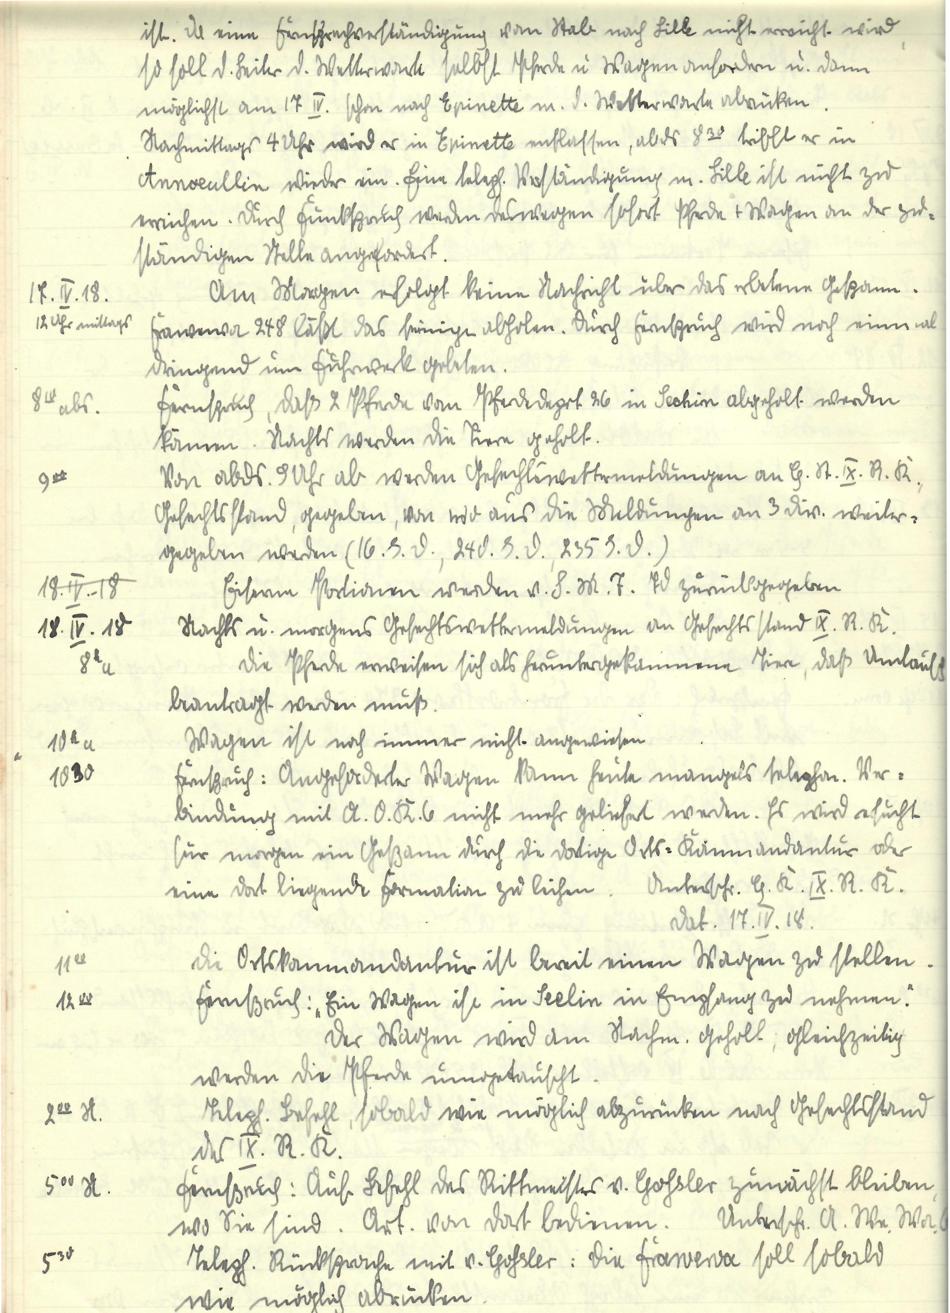 ist. Da eine Fernsprechverständigung vom Stab nach Lille nicht erreicht wird,
so soll d. Leiter d. Wetterwarte selbst Pferde u Wagen anfordern u. dann
möglichst am 17 IV. schon nach Epinette m. d. Wetterwarte abrücken.
Nachmittags 4 Uhr wird er in Epinette entlassen, abds 8³⁰ trifft er in
Annoeullin wieder ein. Eine teleph. Verständigung m. Lille ist nicht zu
erreichen. Durch Funkspruch werden deswegen sofort Pferde + Wagen an der zu=
ständigen Stelle angefordert.
17. IV. 18. Am Morgen erfolgt keine Nachricht über das erbetene Gespann.
12 Uhr mittags Frawewa 248 läßt das seinige abholen. Durch Fernspruch wird noch einmal
dringend um Fuhrwerk gebeten.
8⁰⁰ abs. Fernspruch, daß 2 Pferde vom Pferdedepot 26 in Seclin abgeholt werden
können. Nachts werden die Tiere geholt.
9⁰⁰ Von abds. 9 Uhr ab werden Gefechtswettermeldungen an G. St. IX. R. K.,
Gefechtsstand, gegeben, von wo aus die Meldungen an 3 Div. weiter=
gegeben werden (16. I. D., 240. I. D., 235 I. D.)
18. IV. 18 Eiserne Portionen werden v. S. M. F. 7d zurückgegeben
18. IV. 18 Nachts u. morgens Gefechtswettermeldungen an Gefechtsstand IX. R. K.
8ʰ a Die Pferde erweisen sich als heruntergekommene Tiere, daß Umtausch
beantragt werden muß.
10ʰ a Wagen ist noch immer nicht angewiesen.
10³⁰ Fernspruch: Angeforderter Wagen kann heute mangels telephon. Ver=
bindung mit A. O. K. 6 nicht mehr geliefert werden. Es wird ersucht
für morgen ein Gespann durch die dortige Orts=Kommandantur oder
eine dort liegende Formation zu leihen. Unterschr. G. K. IX. R. K.
Dat. 17. IV. 18.
11⁰⁰ Die Ortskommandantur ist bereit einen Wagen zu stellen.
12⁰⁰ Fernspruch: „Ein Wagen ist in Seclin in Empfang zu nehmen."
Der Wagen wird am Nachm. geholt, gleichzeitig
werden die Pferde umgetauscht.
2⁰⁰ N. Teleph. Befehl, sobald wie möglich abzurücken nach Gefechtsstand
des IX. R. K.
5⁰⁰ N. Fernspruch: Auf Befehl des Rittmeisters v. Goßler zunächst bleiben,
wo Sie sind. Art. von dort bedienen. Unterschr. A. We. Wa. 6
5³⁰ Teleph. Rücksprache mit v. Goßler: Die Frawewa soll sobald
wie möglich abrücken.